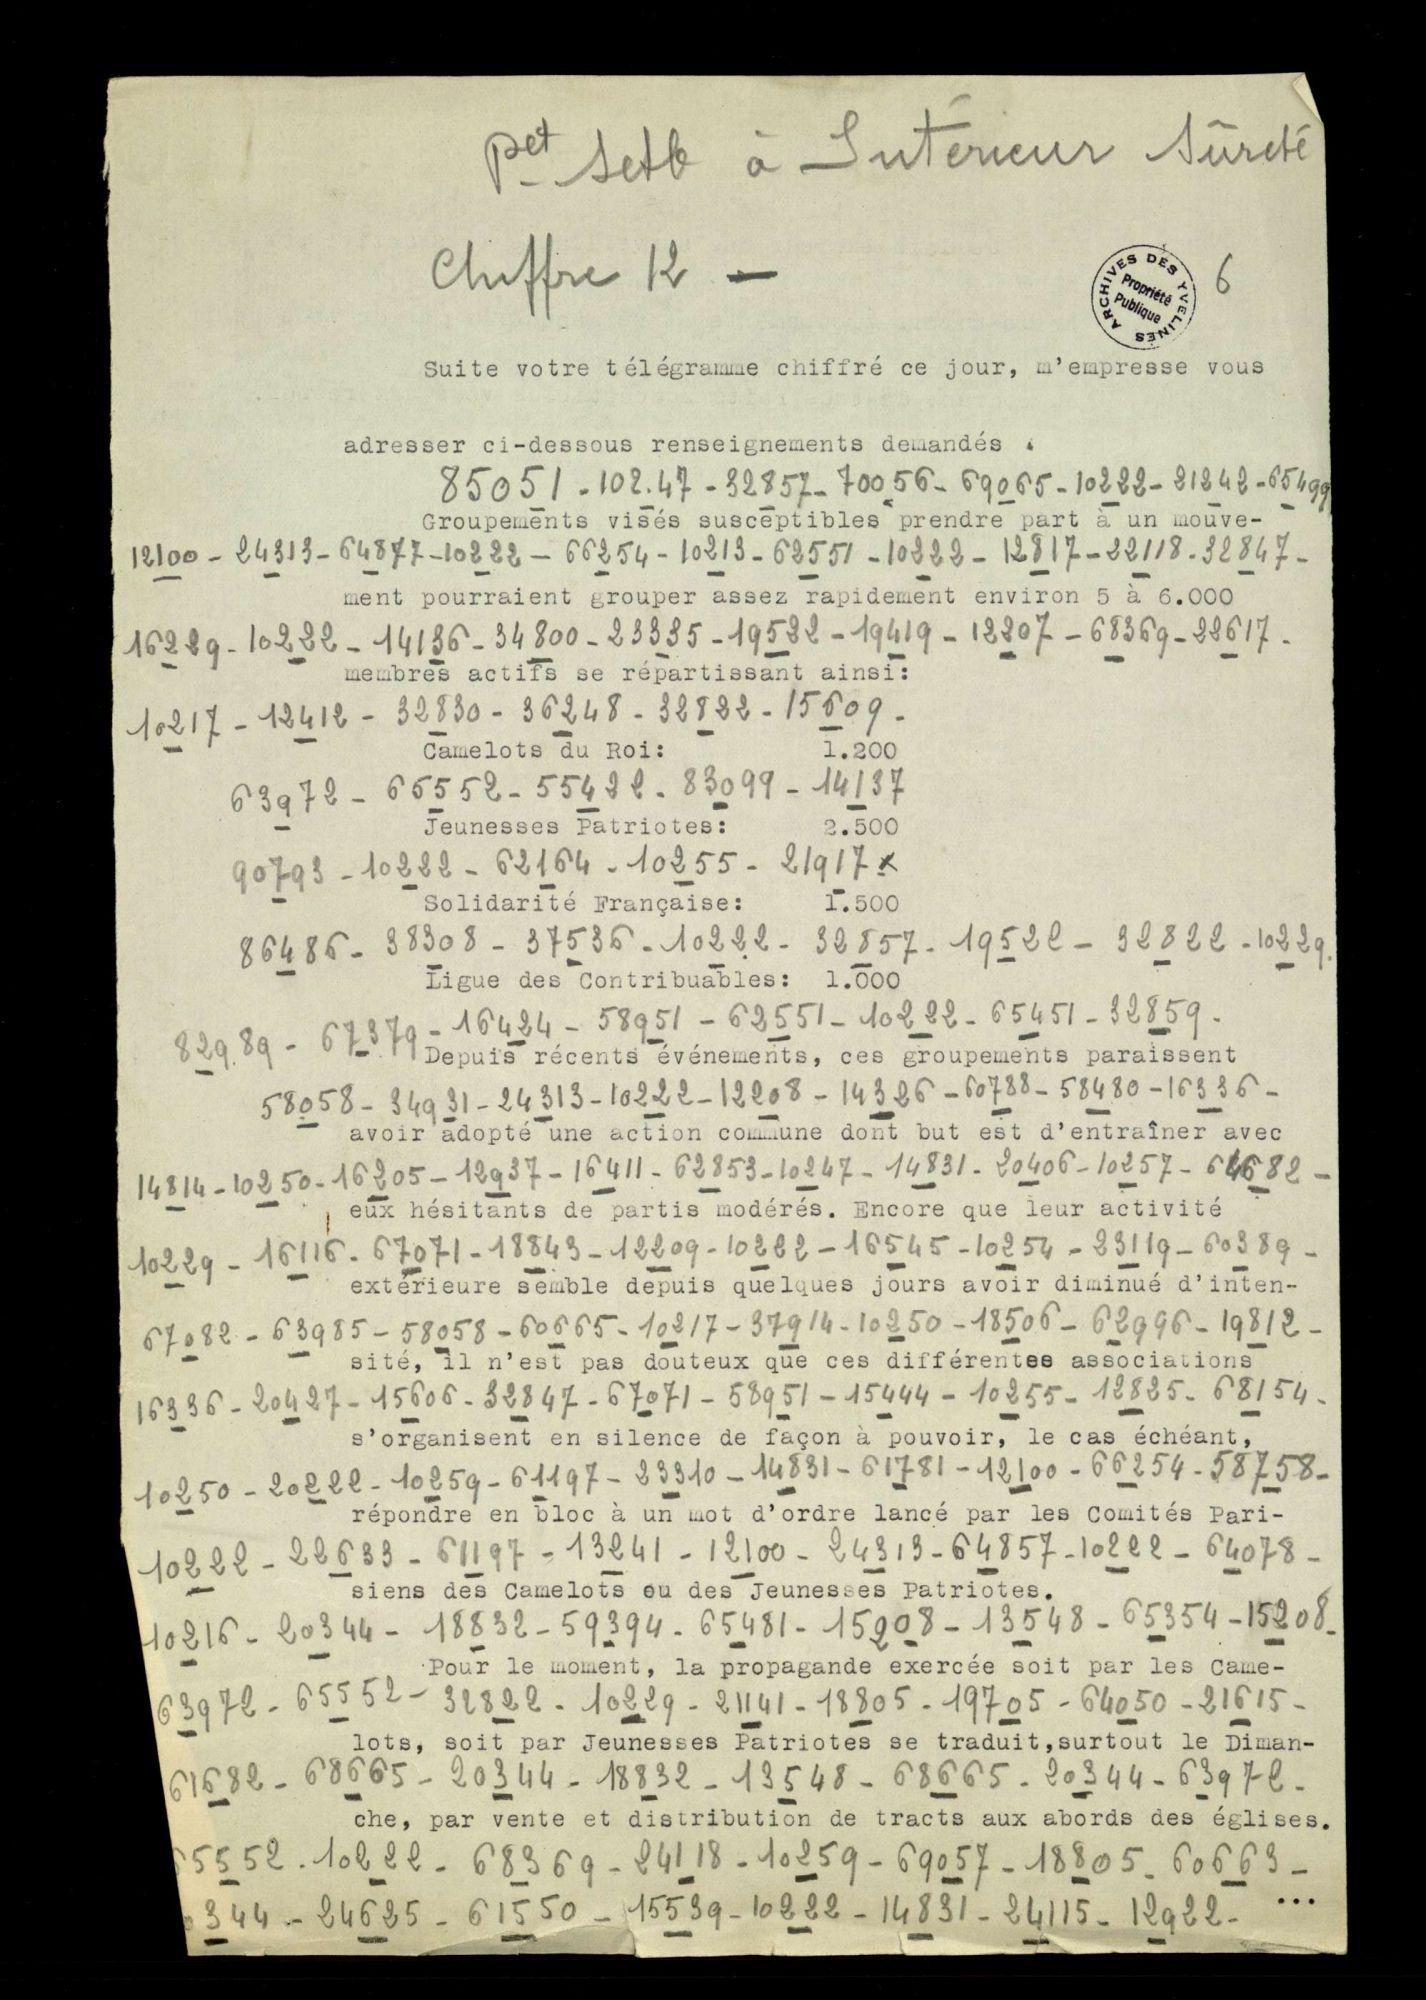 Pet Set O à Intérieur Sûreté
Chiffre 12 —
ARCHIVES DES YVELINES
Propriété
Publique
6
Suite votre télégramme chiffré ce jour, m'empresse vous
adresser ci-dessous renseignements demandés .
85051 - 102.47 - 32857 - 70056 - 69065 - 10222 - 21242 - 65499
Groupements visés susceptibles prendre part à un mouve-
12100 - 24313 - 64877 - 10222 - 66254 - 10213 - 62551 - 10222 - 12817 - 22118 - 32847 -
ment pourraient grouper assez rapidement environ 5 à 6.000
16229 - 10222 - 14136 - 34800 - 23335 - 19522 - 19419 - 12207 - 68369 - 22617 -
membres actifs se répartissant ainsi:
10217 - 12412 - 32830 - 36248 - 32822 - 15609 -
Camelots du Roi: 1.200
63972 - 65552 - 55422 - 83099 - 14137
Jeunesses Patriotes: 2.500
90793 - 10222 - 62164 - 10255 - 21917 x
Solidarité Française: 1.500
86486 - 38308 - 37536 - 10222 - 32857 - 19522 - 32822 - 10229.
Ligue des Contribuables: 1.000
82989 - 67379 - 16424 - 58951 - 62551 - 10222 - 65451 - 32859 -
Depuis récents événements, ces groupements paraissent
58058 - 34931 - 24313 - 10222 - 12208 - 14326 - 60788 - 58480 - 16336 -
avoir adopté une action commune dont but est d'entraîner avec
14814 - 10250 - 16205 - 12937 - 16411 - 62853 - 10247 - 14831 - 20406 - 10257 - 64682 -
eux hésitants de partis modérés. Encore que leur activité
10229 - 16116 - 67071 - 18843 - 12209 - 10222 - 16545 - 10254 - 23119 - 60389 -
extérieure semble depuis quelques jours avoir diminué d'inten-
67082 - 63985 - 58058 - 60665 - 10217 - 37914 - 10250 - 18506 - 62996 - 19812 -
sité, il n'est pas douteux que ces différentes associations
16336 - 20427 - 15606 - 32847 - 67071 - 58951 - 15444 - 10255 - 12825 - 68154 -
s'organisent en silence de façon à pouvoir, le cas échéant,
10250 - 20222 - 10259 - 61197 - 23310 - 14831 - 61781 - 12100 - 66254 - 58758 -
répondre en bloc à un mot d'ordre lancé par les Comités Pari-
10222 - 22633 - 61197 - 13241 - 12100 - 24313 - 64857 - 10222 - 64078 -
siens des Camelots ou des Jeunesses Patriotes.
10216 - 20344 - 18832 - 59394 - 65481 - 15208 - 13548 - 65354 - 15208 -
Pour le moment, la propagande exercée soit par les Came-
63972 - 65552 - 32822 - 10229 - 21141 - 18805 - 19705 - 64050 - 21615 -
lots, soit par Jeunesses Patriotes se traduit,surtout le Diman-
61682 - 68665 - 20344 - 18832 - 13548 - 68665 - 20344 - 63972 -
che, par vente et distribution de tracts aux abords des églises.
5552 - 10222 - 68369 - 24118 - 10259 - 69057 - 18805 - 60663 -
344 - 24625 - 61550 - 15539 - 10222 - 14831 - 24115 - 12922 - ...